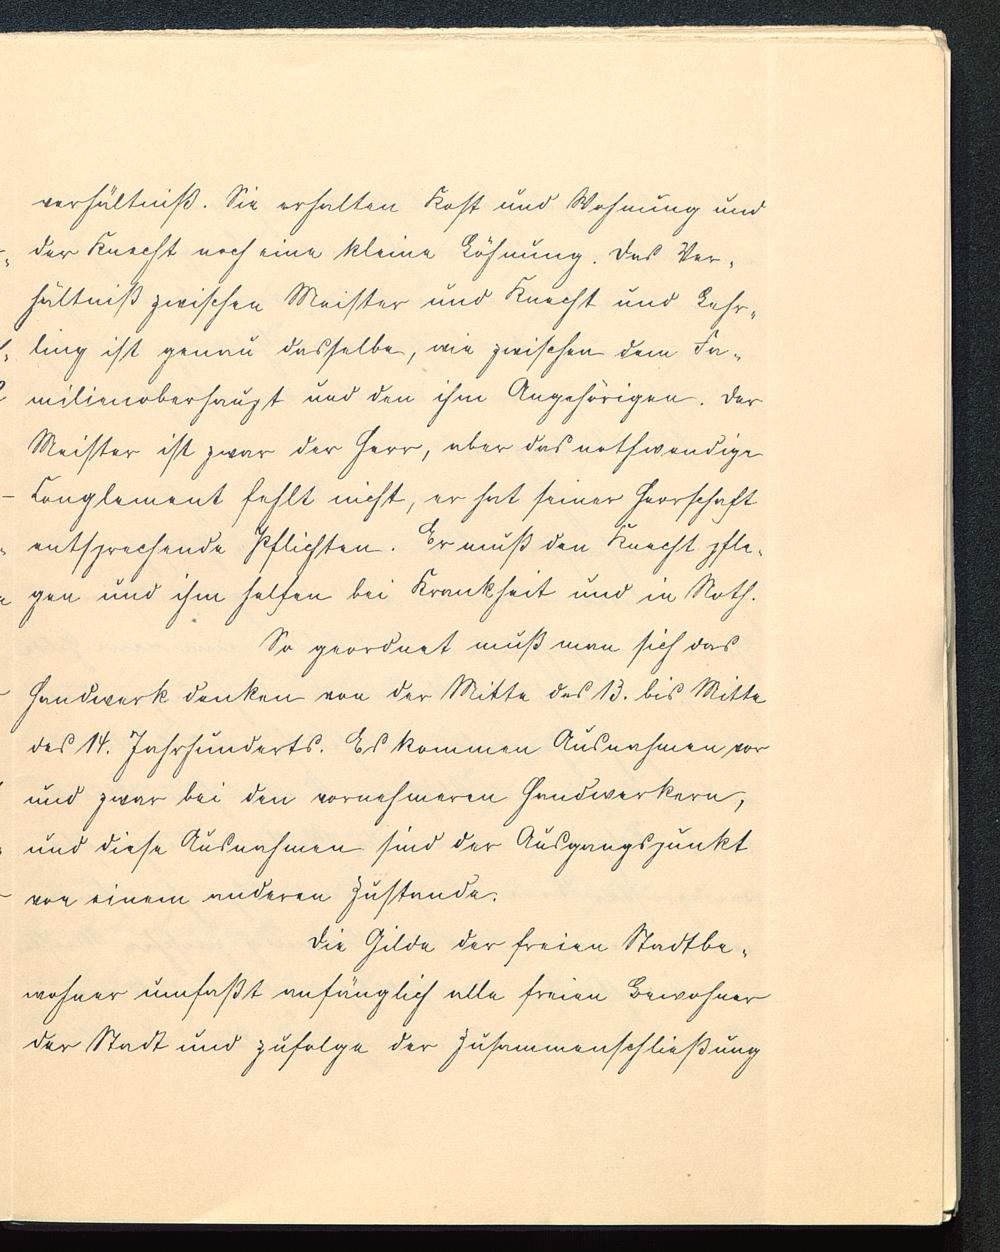 verhältniß. Sie erhalten Kost und Wohnung und
der Knecht noch eine kleine Löhnung. Das Ver-
hältniß zwischen Meister und Knecht und Lehr-
ling ist genau dasselbe, wie zwischen dem Fa-
milienoberhaupt und den ihm Angehörigen. Der
Meister ist zwar der Herr, aber das nothwendige
Conglement fehlt nicht, er hat seiner Herrschaft
entsprechende Pflichten. Er muß den Knecht pfle-
gen und ihm helfen bei Krankheit und in Noth.
So geordnet muß man sich das
Handwerk denken von der Mitte des 13. bis Mitte
des 14. Jahrhunderts. Es kommen Ausnahmen vor
und zwar bei den vornehmeren Handwerkern,
und diese Ausnahmen sind der Ausgangspunkt
von einem anderen Zustande.
Die Gilde der freien Stadtbe-
wohner umfaßt anfänglich alle freien Bewohner
der Stadt und zufolge der Zusammenschließung